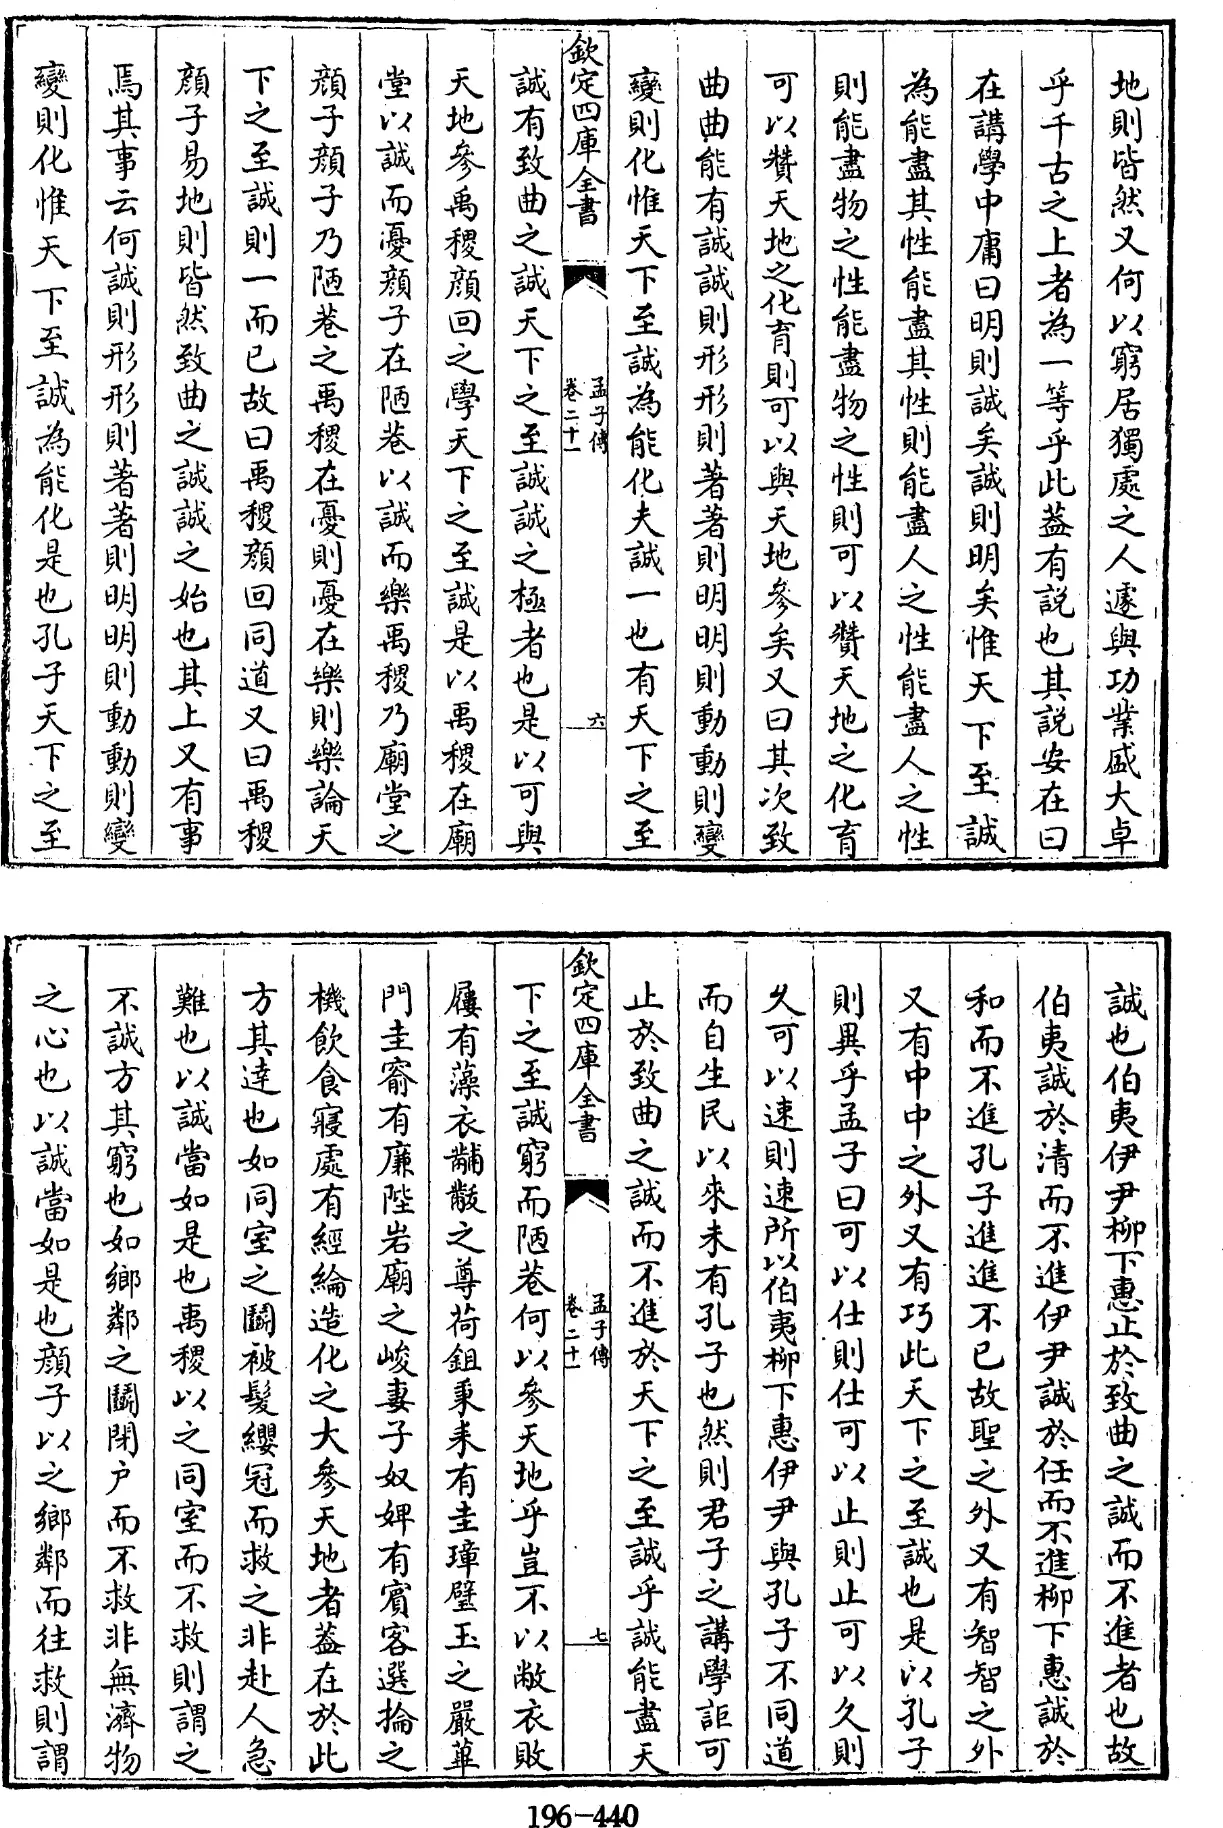 地則皆然又何以窮居獨處之人遽與功業盛大卓
乎千古之上者為一等乎此葢有説也其説安在曰
在講學中庸曰明則誠矣誠則明矣惟天下至誠
為能盡其性能盡其性則能盡人之性能盡人之性
則能盡物之性能盡物之性則可以贊天地之化育
可以贊天地之化育則可以與天地參矣又曰其次致
曲曲能有誠誠則形形則著著則明明則動動則變
變則化惟天下至誠為能化夫誠一也有天下之至
欽定四庫全書
孟子傳
卷二十一
六
誠有致曲之誠天下之至誠誠之極者也是以可與
天地參禹稷顔回之學天下之至誠是以禹稷在廟
堂以誠而憂顔子在陋巷以誠而樂禹稷乃廟堂之
顔子顔子乃陋巷之禹稷在憂則憂在樂則樂論天
下之至誠則一而已故曰禹稷顔回同道又曰禹稷
顔子易地則皆然致曲之誠誠之始也其上又有事
焉其事云何誠則形形則著著則明明則動動則變
變則化惟天下至誠為能化是也孔子天下之至
誠也伯夷伊尹柳下惠止於致曲之誠而不進者也故
伯夷誠於清而不進伊尹誠於任而不進柳下惠誠於
和而不進孔子進進不已故聖之外又有智智之外
又有中中之外又有巧此天下之至誠也是以孔子
則異乎孟子曰可以仕則仕可以止則止可以久則
久可以速則速所以伯夷柳下惠伊尹與孔子不同道
而自生民以來未有孔子也然則君子之講學詎可
止於致曲之誠而不進於天下之至誠乎誠能盡天
欽定四庫全書
孟子傳
卷二十一
七
下之至誠窮而陋巷何以參天地乎豈不以敝衣敗
屨有藻衣黼黻之尊荷鉏秉耒有圭璋璧玉之嚴蓽
門圭窬有廉陛岩廟之峻妻子奴婢有賓客選掄之
機飲食寢處有經綸造化之大參天地者葢在於此
方其達也如同室之鬭被髮纓冠而救之非赴人急
難也以誠當如是也禹稷以之同室而不救則謂之
不誠方其窮也如鄉鄰之鬭閉户而不救非無濟物
之心也以誠當如是也顔子以之鄉鄰而往救則謂
196-440